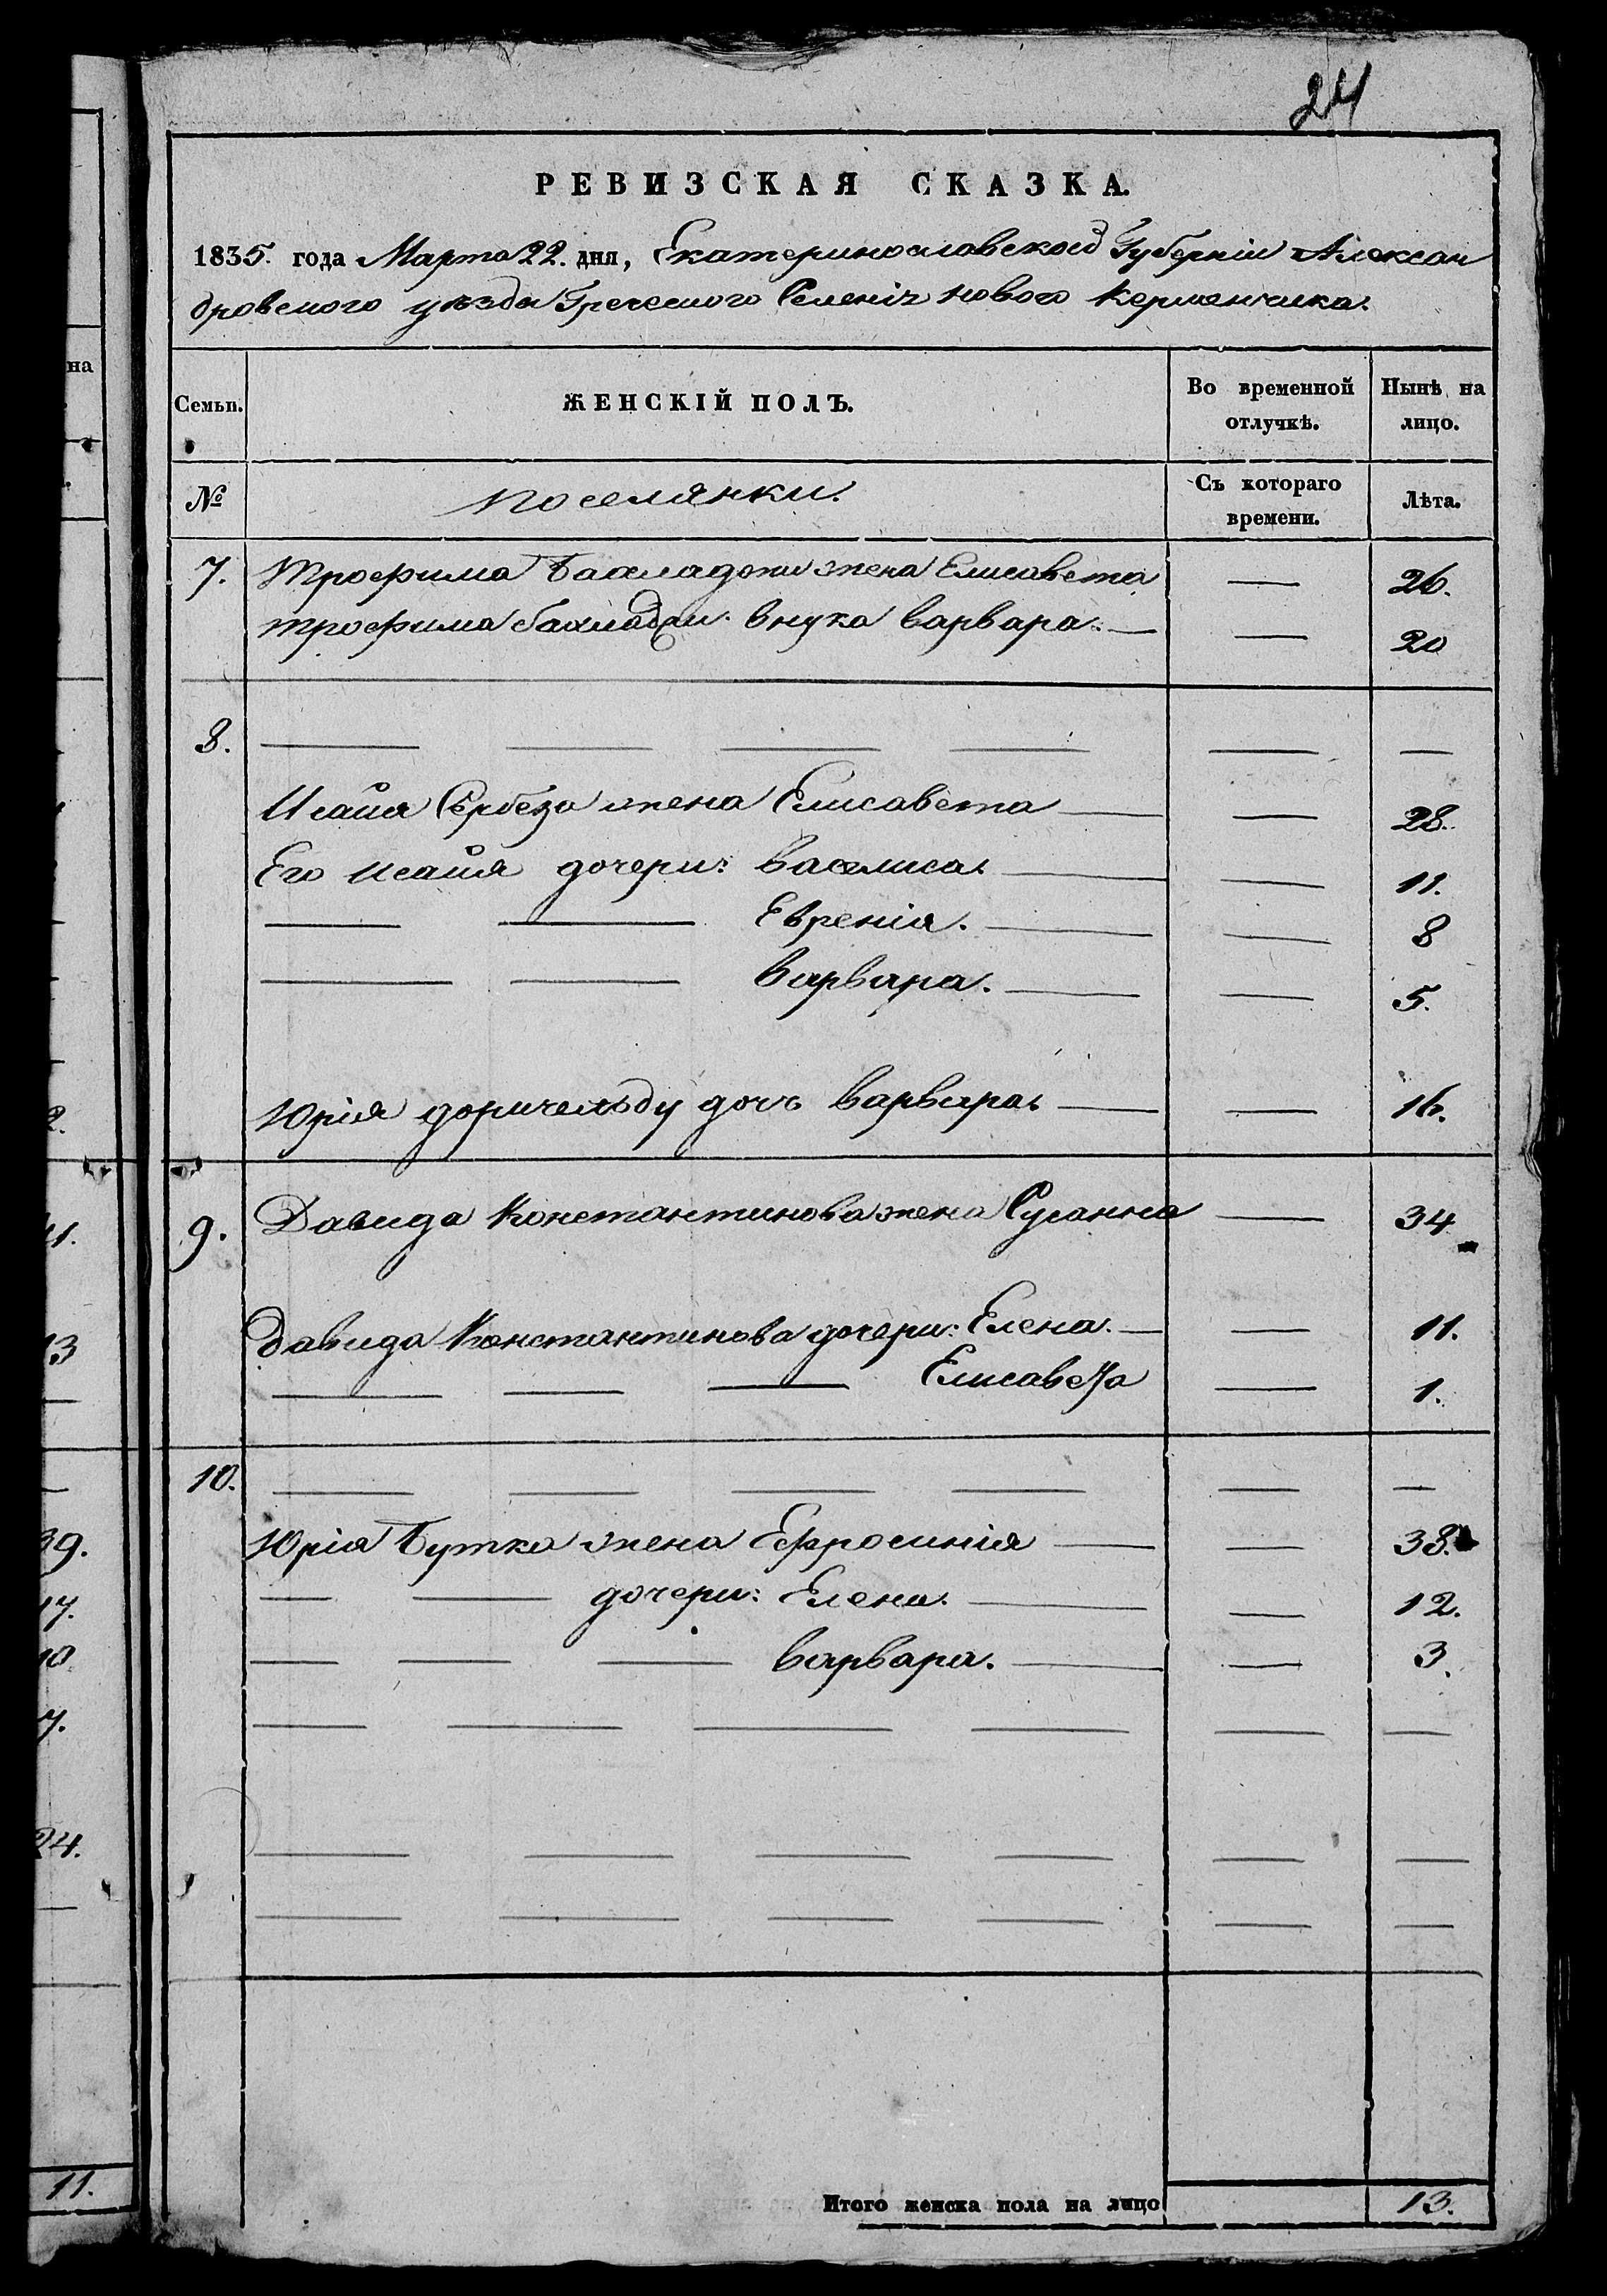 24
РЕВИЗСКАЯ СКАЗКА.
1835. года Марта 22. дня, Екатеринославской Губерніи Алексан
дровского уѣзда Греческого Селенія нового Керменчика.
на
Семьи.
ЖЕНСКІЙ ПОЛЪ.
Во временной отлучкѣ.
Нынѣ на лицо.
№
Поселянки.
Съ котораго времени.
Лѣта.
7. Трофима жена Елисавета — 26.
трофима внука варвара. — — 20
8. — — — — — —
Исаия Сербеза жена Елисавета — — 28.
Его Исаия дочери: василиса. — — 11.
— — Евренія. — — 8
— — варвара. — — 5.
Юрія доричельду дочь варвара. — — 16.
9. Давида Константинова жена Сусанна — 34
Давида Константинова дочери: Елена. — — 11.
— — — Елисавета — 1.
10. — — — — — —
Юрія Бутка жена Ефросинія — — 38.
— — дочери: Елена. — — 12.
— — — варвара. — — 3.
— — — — — —
— — — — — —
— — — — — —
Итого женска пола на лицо 13.
2.
41.
13
39.
17.
10
7.
24.
11.